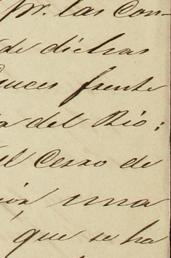 pr. las Con-
de dichas
cruces frente
a del Rio:
el Cerro de
una
que se ha